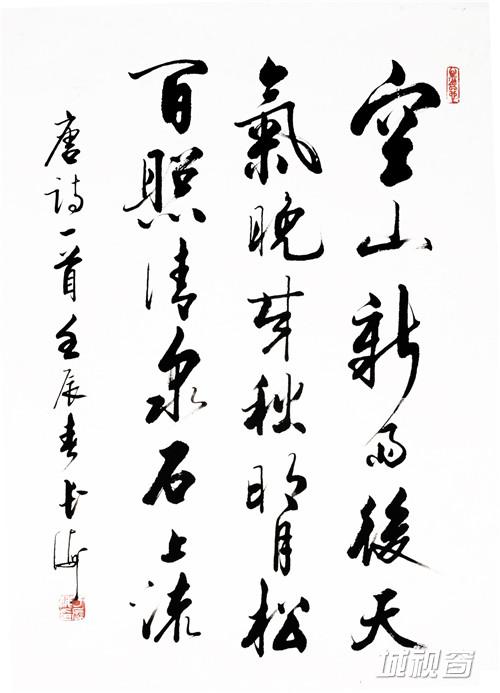 空山新雨後天
氣晚來秋明月松
間照清泉石上流
唐詩一首壬辰春长海
城视窗